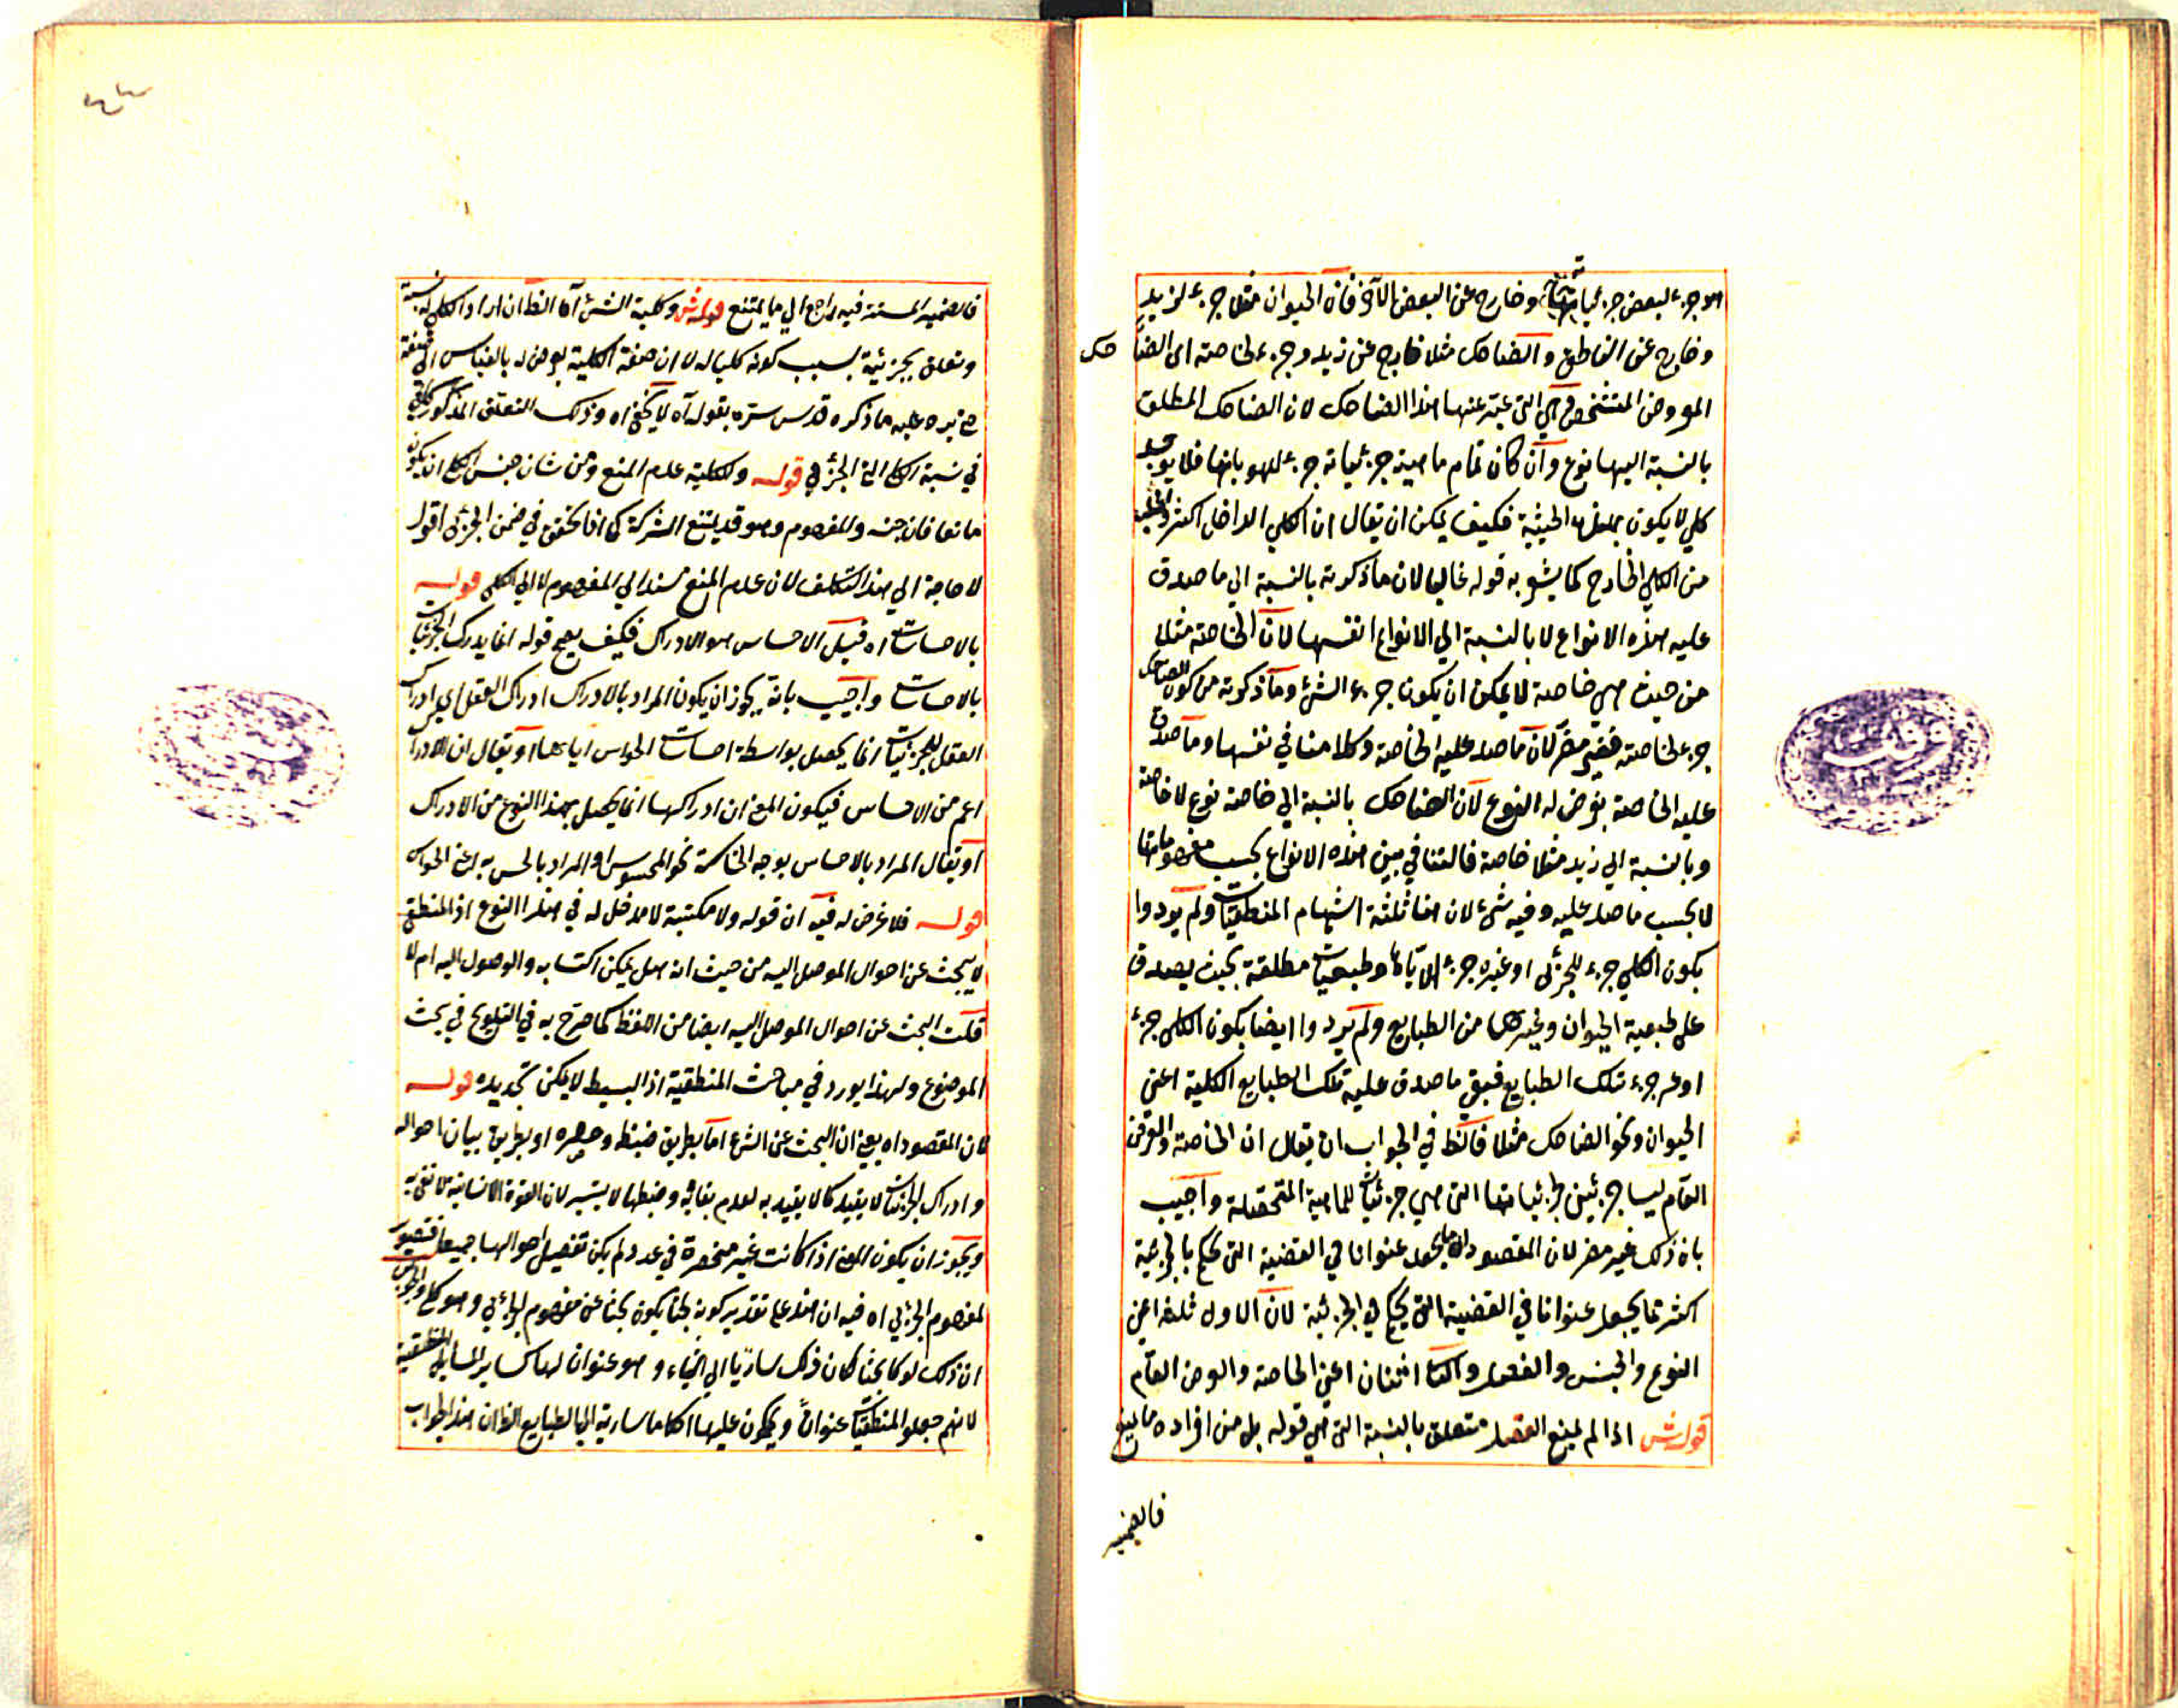 هو جزء لبعض جزئياتها وخارج عن البعض الآخر فان الحيوان مثلا جزء لزيد
وخارج عن الناطق والضاحك مثلا خارج عن زيد وجزء لخاصته اى الضاحك
المعروض المتشخص وهي التي عبر عنها هذا الضاحك لان الضاحك المطلق
بالنسبة اليها نوع وان كان تمام ماهية جزئياته جزء لهوياتها فلا يوجد
كلي لا يكون بهذه الحيثية فكيف يمكن ان يقال ان الكلي الداخل اكثر
من الكلي الخارج كما يشعر به قوله غالبا لان ما ذكرته بالنسبة الي ما صدق
عليه هذه الانواع لا بالنسبة الي الانواع انفسها لان الخاصة مثلا
من حيث هي خاصة لا يمكن ان يكون جزء الشئ وما ذكرته من كون الضاحك
جزء لخاصته فغير مضر لان ما صدق عليه الخاصة وكلامنا في نفسها وما صدق
عليه الخاصة يعرض له النوع لان الضاحك بالنسبة الي خاصة نوع لا خاصة
وبالنسبة الي زيد مثلا خاصة فالتنافي بين هذه الانواع بحسب مفهوماتها
لا بحسب ما صدق عليه وفيه شئ لان هنا ثلثة اشياء المنطقيات ولم يريدوا
بكون الكلي جزء للجزئى او غيره جزء الا اياها وطبيعيات مطلقة بحيث يصدق
على طبيعية الحيوان وغيرها من الطبايع ولم يريدوا ايضا بكون الكلى جزء
او غير جزء تلك الطبايع فبقي ما صدق عليه تلك الطبايع الكلية اعنى
الحيوان ونحو الضاحك مثلا فالظ في الجواب ان يقال ان الخاصة والعرض
العام ليسا جزئين لجزئياتها التى هي جزئيات للماهية المتحصلة واجيب
بان ذلك غير مضر لان المقصود ان ما يجعل عنوانا في القضية التى يحكم بالجزئية
اكثر مما يجعل عنوانا في القضية التي يحكم في الجزئية لان الاول ثلثة اعني
النوع والجنس والفصل والثاني اثنان اعني الخاصة والعرض العام
قوله ش اذا لم يمنع العقل متعلق بالنسبة التى هي قوله بل من افراده ما يمنع
فالضمير
فالضمير المستتر فيه راجع الي ما يمتنع قوله ش وكلية الشئ آه الظ ان اراد الكلي له نسبة
وتعلق بجزئية بسبب كونه كليا له لا ان صفة الكلية يعرض له بالقياس الى صفة
حتى يرد عليه ما ذكره قدس سره بقوله آه لا يخفى اه وذلك التعلق المذكور كاف
في نسبة الكل الى الجزئي قوله وللكلية عدم المنع ومن شان جنس الكلي ان يكون
مانعا فان جنسه والمفهوم وهو قد يمنع الشركة كما اذا تحقق في ضمن الجزئى اقول
لا حاجة الي هذا التكلف لان عدم المنع مسند الي المفهوم لا الي الكلي قوله
بالاحساسات اه قيل الاحساس هو الادراك فكيف يصح قوله انما يدرك الجزئيات
بالاحساسات واجيب بانه يجوز ان يكون المراد بالادراك ادراك العقل اي ادراك
العقل للجزئيات انما يحصل بواسطة احساسات الحواس اياها او يقال ان الادراك
اعم من الاحساس فيكون المعنى ان ادراكها انما يحصل بهذا النوع من الادراك
او يقال المراد بالاحساس توجه الحاسة نحو المحسوس او المراد بالحس به اعني الحواس
قوله فلا غرض له فيه ان قوله ولا مكتسبة لا مدخل له في هذا النوع اذ المنطقي
لا يبحث عن احوال الموصل اليه من حيث انه هل يمكن اكتسابه والوصول اليه ام لا
قلت البحث عن احوال الموصل اليه ايضا من الفن كما صرح به في التلويح في بحث
الموضوع ولهذا يورد في مباحث المنطقية اذ البسيط لا يمكن تحديده قوله
لان المقصود اه يعني ان البحث عن الشئ اما بطريق ضبطه وحصره او بطريق بيان احواله
وادراك الجزئيات لا يفيد كمالا يعتد به لعدم بقائه وضبطها لا يتيسر لان القوة الانسانية لا تفي به
ويجوز ان يكون المعنى اذا كانت غير منحصرة في عدد لم يكن تفصيل احوالها جميعا فتصور
لمفهوم الجزئي اه فيه ان هذا على تقدير كونه بحثا يكون بحثا عن مفهوم الجزئي وهو كلي والجواب
ان ذلك لو كان بحثا لكان ذلك ساريا الي اشياء وهو عنوان لها كساير المسايل المنطقية
لانهم جعلوا المنطقيات عنوانا ويحكمون عليها احكاما سارية الي الطبايع الظ ان هذا الجواب